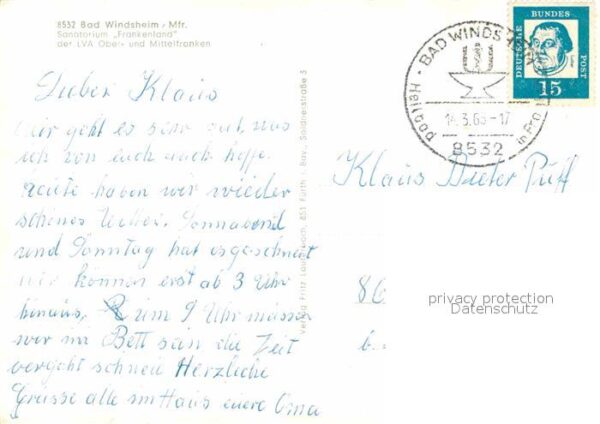 8532 Bad Windsheim - Mfr.
Sanatorium „Frankenland"
der LVA Ober- und Mittelfranken
Lieber Klaus
Mir geht es sehr gut, was
ich von euch auch hoffe.
heute haben wir wieder
schönes Wetter. Sonnabend
und Sonntag hat es geschneit
wir können erst ab 3 Uhr
hinaus, um 9 Uhr müssen
wir im Bett sein die Zeit
vergeht schnell Herzliche
Grüsse alle im Haus eure Oma
Verlag Fritz Lauterbach, 851 Fürth i. Bay., Soldnerstraße 3
BAD WINDSHEIM
Heilbad
8532
DEUTSCHE BUNDES POST
15
Klaus Dieter Puff
86
privacy protection
Datenschutz